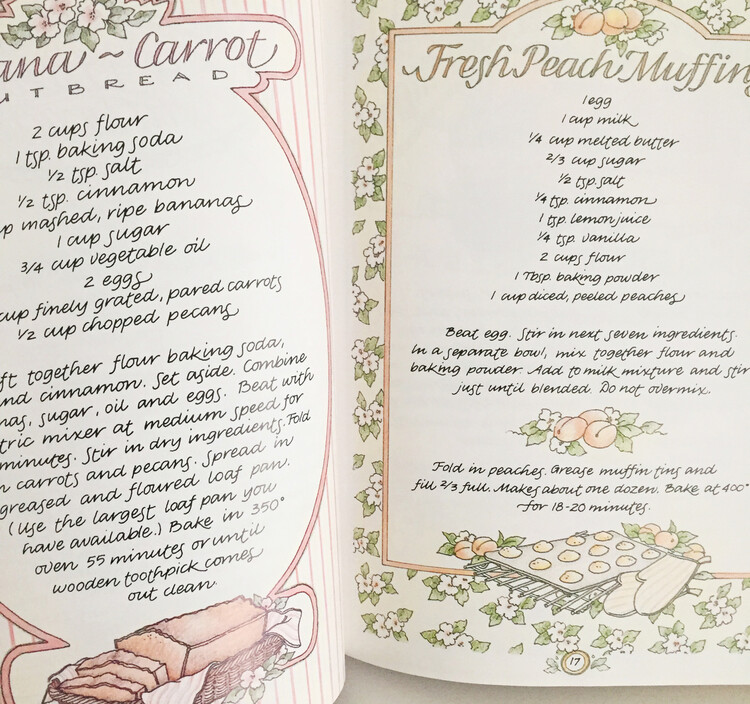 ana ~ Carrot
UTBREAD
2 cups flour
1 tsp. baking soda
1/2 tsp. salt
1/2 tsp. cinnamon
p mashed, ripe bananas
1 cup sugar
3/4 cup vegetable oil
2 eggs
cup finely grated, pared carrots
1/2 cup chopped pecans
ft together flour baking soda,
nd cinnamon. Set aside. Combine
nas, sugar, oil and eggs. Beat with
tric mixer at medium speed for
minutes. Stir in dry ingredients. Fold
n carrots and pecans. Spread in
greased and floured loaf pan.
(Use the largest loaf pan you
have available.) Bake in 350°
oven 55 minutes or until
wooden toothpick comes
out clean.
Fresh Peach Muffin
1 egg
1 cup milk
1/4 cup melted butter
2/3 cup sugar
1/2 tsp. salt
1/4 tsp. cinnamon
1 tsp. lemon juice
1/4 tsp. vanilla
2 cups flour
1 Tbsp. baking powder
1 cup diced, peeled peaches
Beat egg. Stir in next seven ingredients.
In a separate bowl, mix together flour and
baking powder. Add to milk mixture and stir
just until blended. Do not overmix.
Fold in peaches. Grease muffin tins and
fill 2/3 full. Makes about one dozen. Bake at 400°
for 18-20 minutes.
17